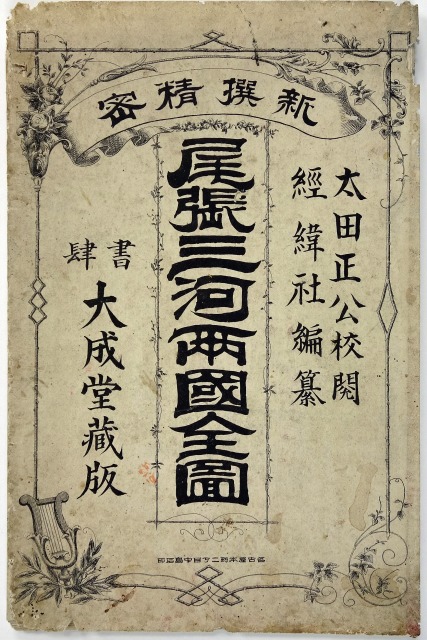 新撰精密
太田正公校閲
經緯社編纂
尾張三河兩國全圖
書肆
大成堂藏版